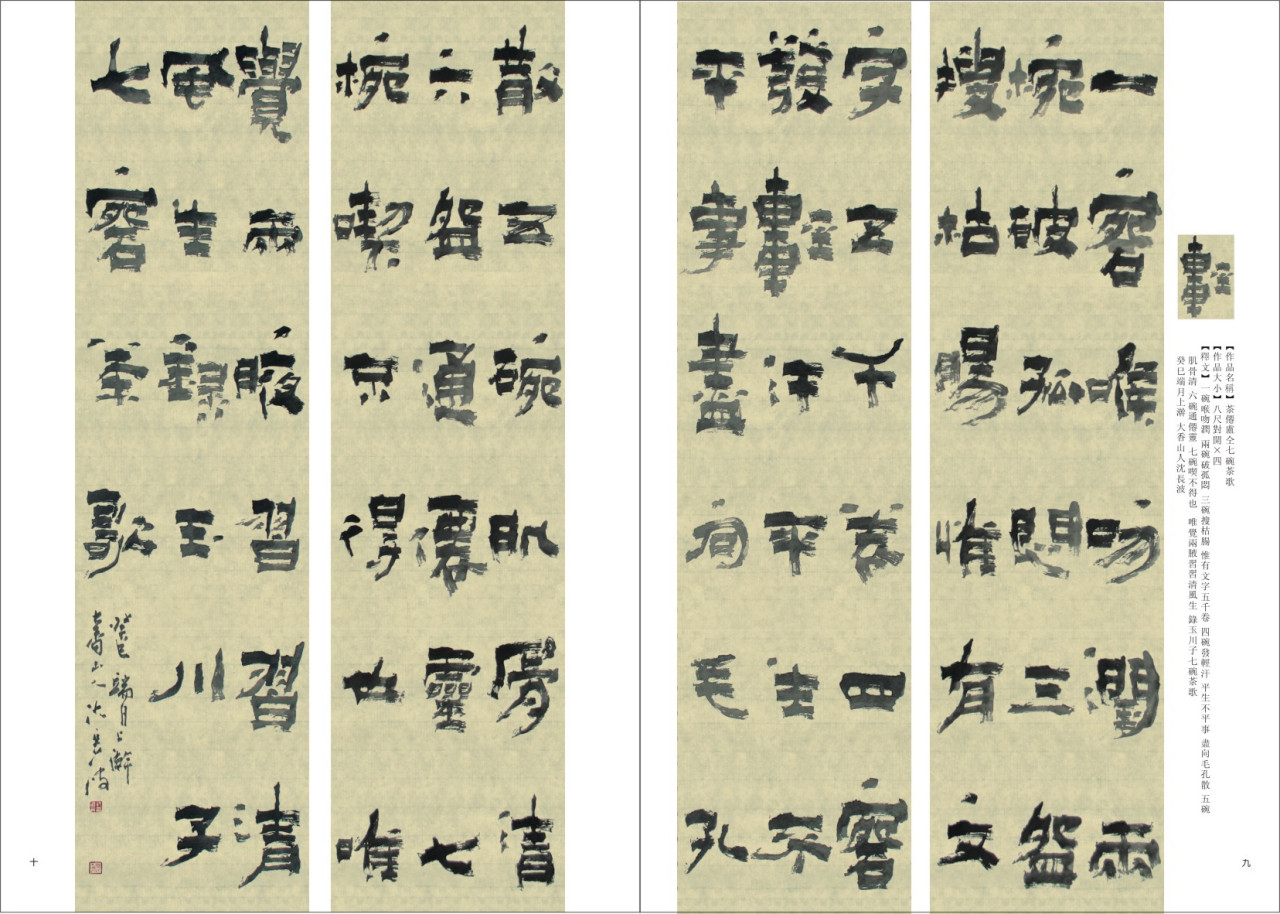 【作品名稱】 茶僊盧仝七碗茶歌
【作品大小】 八尺對開×四
【釋文】 一碗喉吻潤 兩碗破孤悶 三碗搜枯腸 惟有文字五千卷 四碗發輕汗 平生不平事 盡向毛孔散 五碗
肌骨清 六碗通僊靈 七碗喫不得也 唯覺兩腋習習清風生 錄玉川子七碗茶歌
癸巳端月上澣 大香山人沈長波
一碗喉吻潤兩
椀破孤悶三盌
搜枯腸惟有文
字五千卷四碗
發輕汗平生不
平事盡向毛孔
散五碗肌骨清
六盌通僊靈七
椀喫不得也唯
覺兩腋習習清
風生錄玉川子
七碗茶歌
癸巳端月上澣
大香山人沈長波
九
十